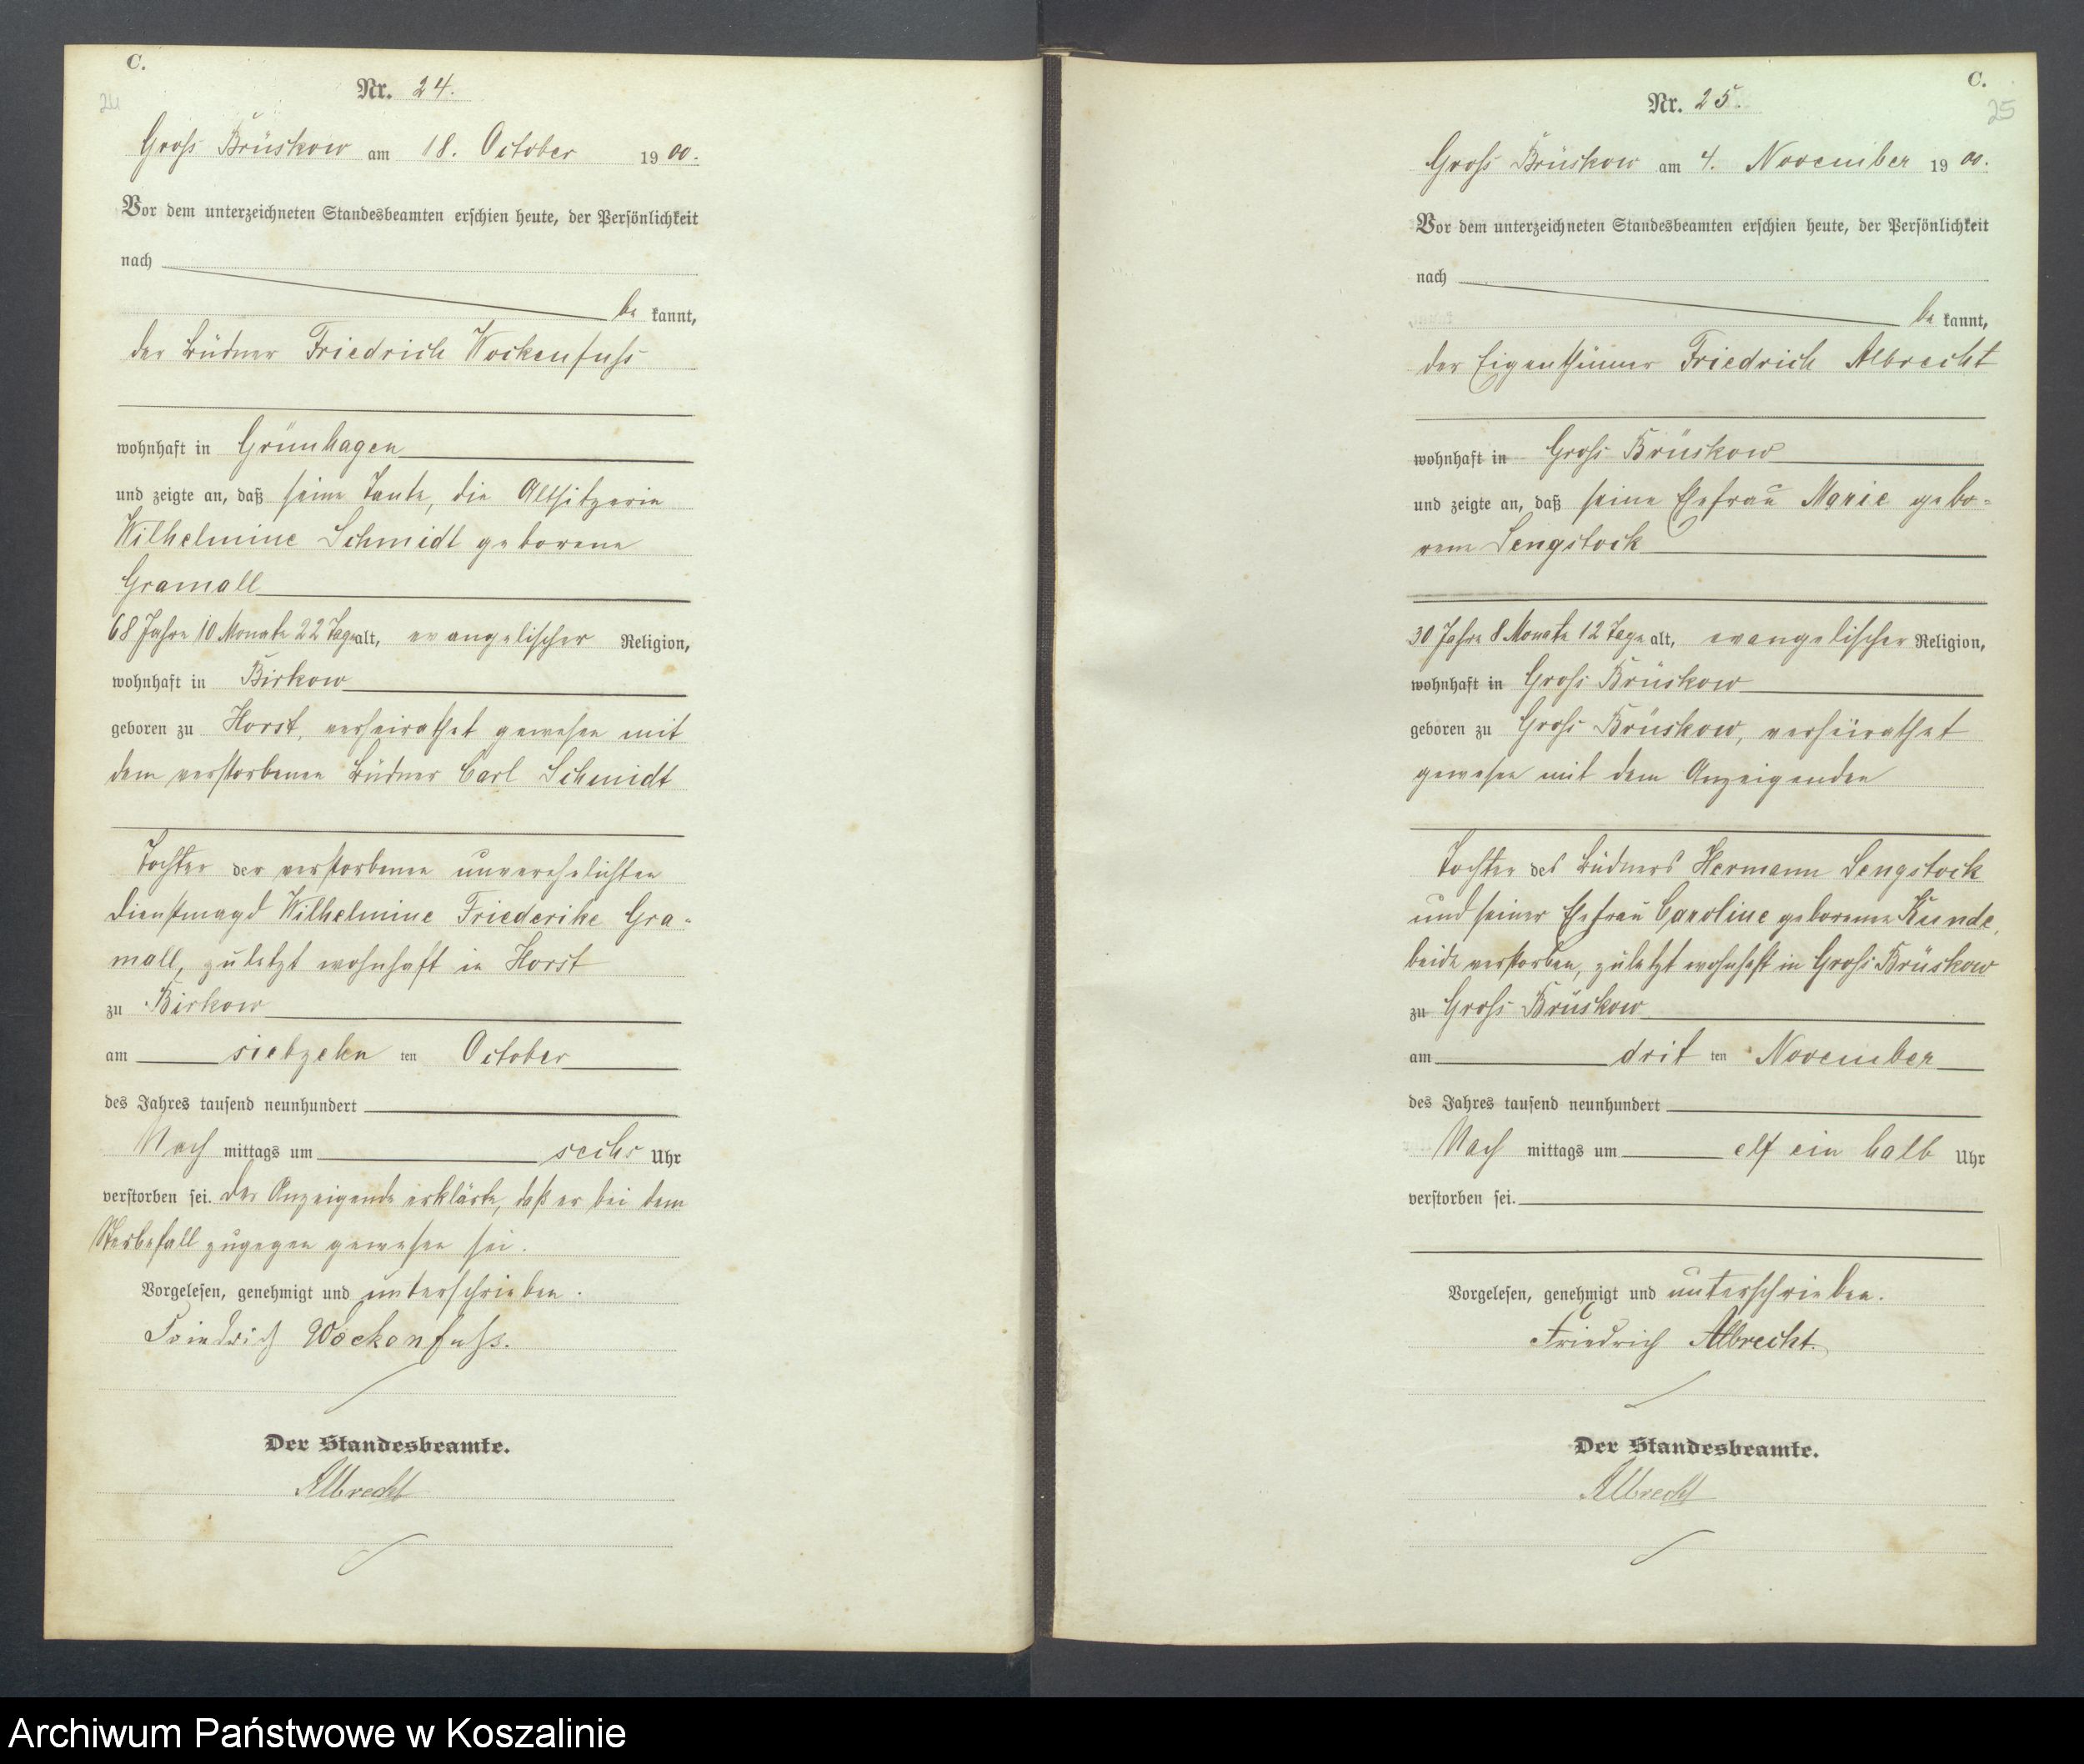 C.
24
Nr. 24.
Gross Brüskow am 18. October 1900.
Vor dem unterzeichneten Standesbeamten erschien heute, der Persönlichkeit
nach
be kannt,
der Büdner Friedrich Wockenfuss
wohnhaft in Grünhagen
und zeigte an, daß seine Tante, die Altsitzerin
Wilhelmine Schmidt geborene
Gramall
68 Jahre 10 Monate 22 Tage alt, evangelischer Religion,
wohnhaft in Birkow
geboren zu Horst, verheirathet gewesen mit
dem verstorbenen Büdner Carl Schmidt
Tochter der verstorbenen unverehelichten
Dienstmagd Wilhelmine Friederike Gra-
mall, zuletzt wohnhaft in Horst
zu Birkow
am siebzehn ten October
des Jahres tausend neunhundert
Nach mittags um sechs Uhr
verstorben sei. Der Anzeigende erklärte, daß er bei dem
Sterbefall zugegen gewesen sei.
Vorgelesen, genehmigt und unterschrieben.
Friedrich Wockenfuss.
Der Standesbeamte.
Albrecht
C.
25
Nr. 25.
Gross Brüskow am 4. November 1900.
Vor dem unterzeichneten Standesbeamten erschien heute, der Persönlichkeit
nach
be kannt,
der Eigenthümer Friedrich Albrecht
wohnhaft in Gross Brüskow
und zeigte an, daß seine Ehefrau Marie gebo-
rene Sengstock
30 Jahre 8 Monate 12 Tage alt, evangelischer Religion,
wohnhaft in Gross Brüskow
geboren zu Gross Brüskow, verheirathet
gewesen mit dem Anzeigenden
Tochter des Büdners Hermann Sengstock
und seiner Ehefrau Caroline geborenen Kunde,
beide verstorben, zuletzt wohnhaft in Gross Brüskow
zu Gross Brüskow
am drit ten November
des Jahres tausend neunhundert
Nach mittags um elf ein halb Uhr
verstorben sei.
Vorgelesen, genehmigt und unterschrieben.
Friedrich Albrecht.
Der Standesbeamte.
Albrecht
Archiwum Państwowe w Koszalinie